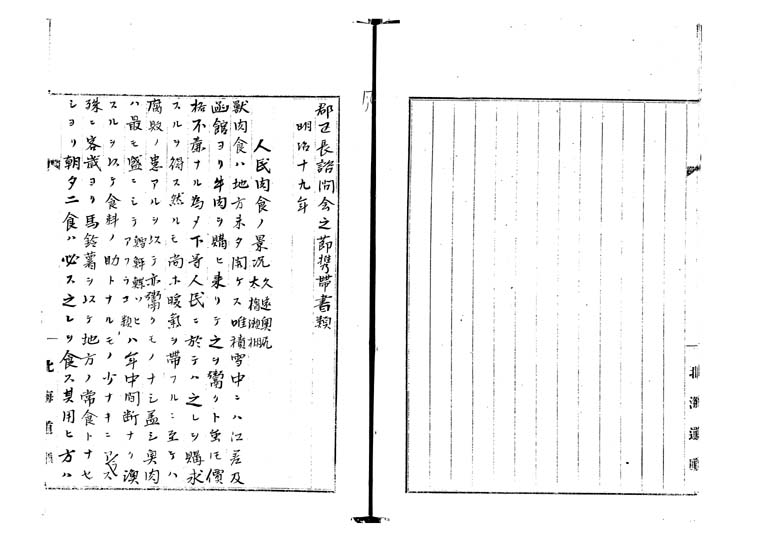 郡区長諮問会之節携帯書類
明治十九年
人民肉食ノ景況 久遠奥尻
太櫓瀬棚
獣肉食ハ地方未タ開ケス唯積雪中ニハ江差及
函館ヨリ牛肉ヲ購ヒ来リテ之ヲ鬻クト雖モ價
格不廉ナル為メ下等人民ニ於テハ之レヲ購求
スルヲ得ス然ルモ尚ホ暖氣ヲ帯フルニ至ケハ
腐敗ノ患アルヲ以テ亦鬻クモノナシ蓋シ魚肉
ハ最モ盛ニシテ アフラコ類ハ年中間断ナク漁
スルヲ以テ食料ノ助トナルモノ少ナキニアラス
殊ニ客歳ヨリ馬鈴薯ヲ以テ地方ノ常食トナセ
シヨリ朝夕二食ハ必ス之レヲ食ス其用ヒ方ハ
北海道
北海道